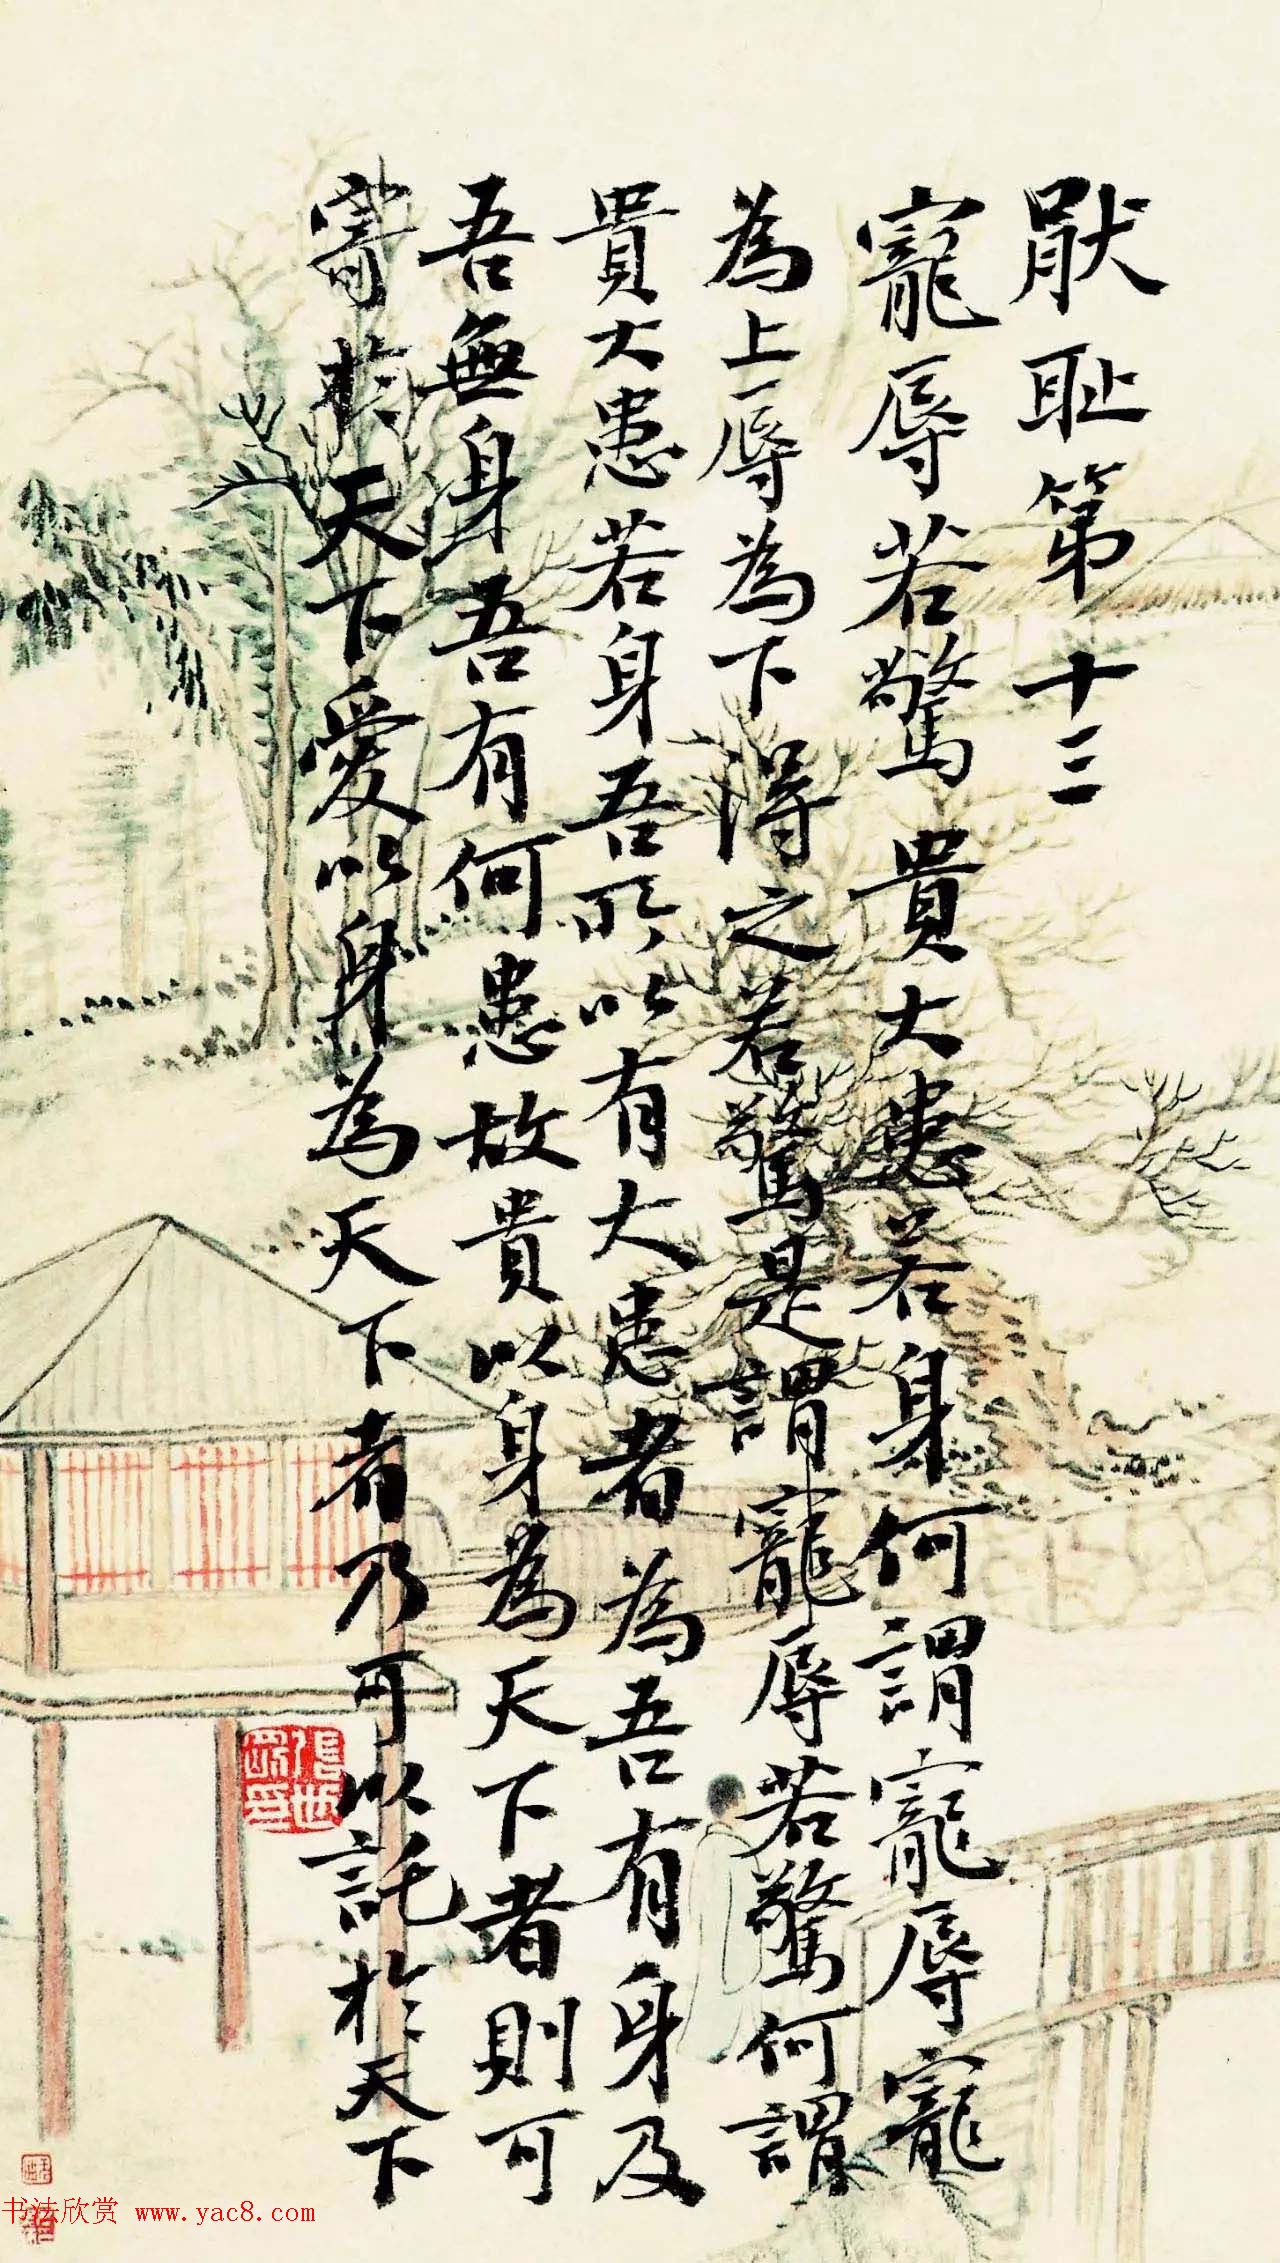 猒恥第十三
寵辱若驚貴大患若身何謂寵辱寵
為上辱為下得之若驚是謂寵辱若驚何謂
貴大患若身吾所以有大患者為吾有身及
吾無身吾有何患故貴以身為天下者則可
寄於天下愛以身為天下者乃可以託於天下
书法欣赏 www.yac8.com